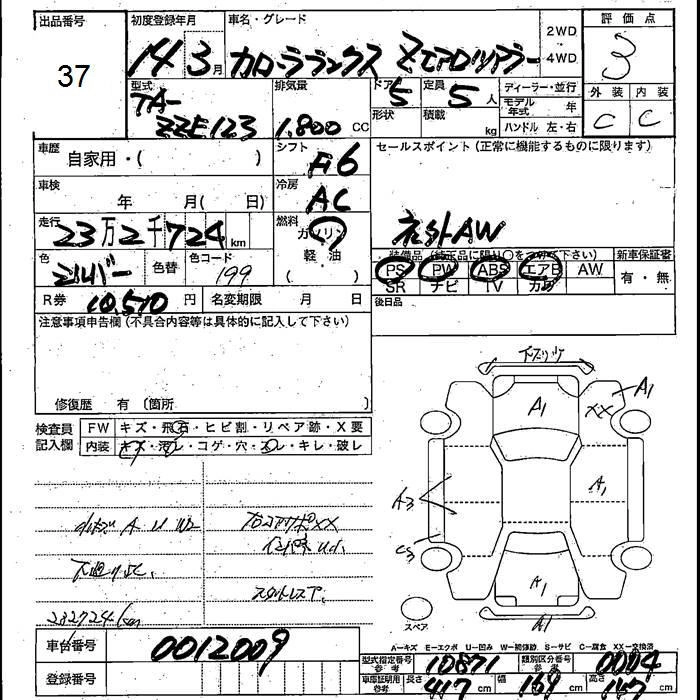 出品番号 37
初度登録年月 14年 3月
車名・グレード カローラランクス Zエアロツアラー
2WD
4WD
評価点 3
外装 内装
C C
型式 TA-ZZE123
排気量 1.800 CC
ドア 5
形状
定員 5 人
積載 kg
ディーラー・並行
モデル年式 年
ハンドル 左・右
車歴 自家用・( )
シフト F6
セールスポイント (正常に機能するものに限ります)
車検 年 月( 日)
冷房 AC
走行 23万2千724km
燃料 ガソリン
軽油
( )
社外AW
色 シルバー
色替
色コード 199
装備品 (純正品に限り○をつけて下さい)
新車保証書
PS PW ABS エアB AW
SR ナビ TV カワ
有・無
R券 10,510 円
名変期限 月 日
後日品
注意事項申告欄(不具合内容等は具体的に記入して下さい)
修復歴 有 〔箇所 〕
検査員記入欄
FW キズ・飛石・ヒビ割・リペア跡・X要
内装 キズ・汚レ・コゲ・穴・スレ・キレ・破レ
A U W2
下廻りSC.
232724km
スタットレスT.
下スリキズ
A1
XX
A1
A1
A3
C3
A1
A1
スペア
A-キズ E-エクボ U-凹み W-補修跡 S-サビ C-腐食 XX-交換済
車台番号 0012009
登録番号
型式指定番号 参考 10871
類別区分番号 参考 0004
車庫証明用 参考 長さ 417 cm 幅 169 cm 高さ 147 cm